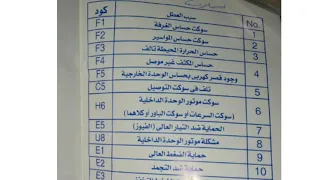 كود سبب العطل No.
F1 سوكت حساس الغرفة 1
F2 سوكت حساس المواسير 2
F3 حساس الحرارة المحيطة تالف 3
F4 حساس المكثف غير موصل 4
F5 وجود قصر كهربى بحساس الوحدة الخارجية 5
C5 تلف فى سوكت التوصيل
H6 سوكت موتور الوحدة الداخلية 6
(سوكت السرعات أو سوكت الباور أو كلاهما)
E5 الحماية ضد التيار العالى (الفيوز) 7
U8 مشكلة موتور الوحدة الداخلية 8
E1 حماية الضغط العالى 9
E2 الحماية ضد التجمد 10
E3